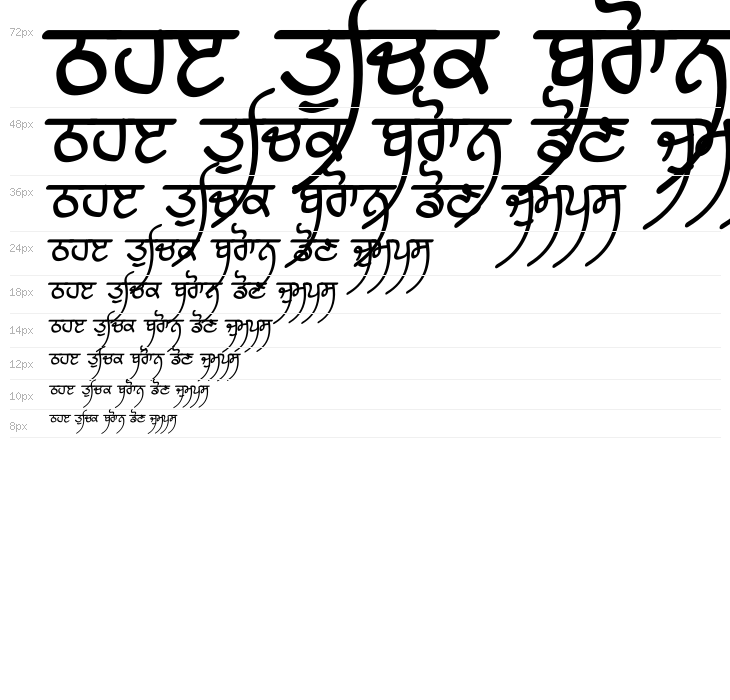 72px ਠਹੲ ਤੁਚਿਕ ਬਰੋਾਨ
48px ਠਹੲ ਤੁਚਿਕ ਬਰੋਾਨ ਡੋਣ
36px ਠਹੲ ਤੁਚਿਕ ਬਰੋਾਨ ਡੋਣ ਜੁਮਪਸ
24px ਠਹੲ ਤੁਚਿਕ ਬਰੋਾਨ ਡੋਣ ਜੁਮਪਸ
18px ਠਹੲ ਤੁਚਿਕ ਬਰੋਾਨ ਡੋਣ ਜੁਮਪਸ
14px ਠਹੲ ਤੁਚਿਕ ਬਰੋਾਨ ਡੋਣ ਜੁਮਪਸ
12px ਠਹੲ ਤੁਚਿਕ ਬਰੋਾਨ ਡੋਣ ਜੁਮਪਸ
10px ਠਹੲ ਤੁਚਿਕ ਬਰੋਾਨ ਡੋਣ ਜੁਮਪਸ
8px ਠਹੲ ਤੁਚਿਕ ਬਰੋਾਨ ਡੋਣ ਜੁਮਪਸ